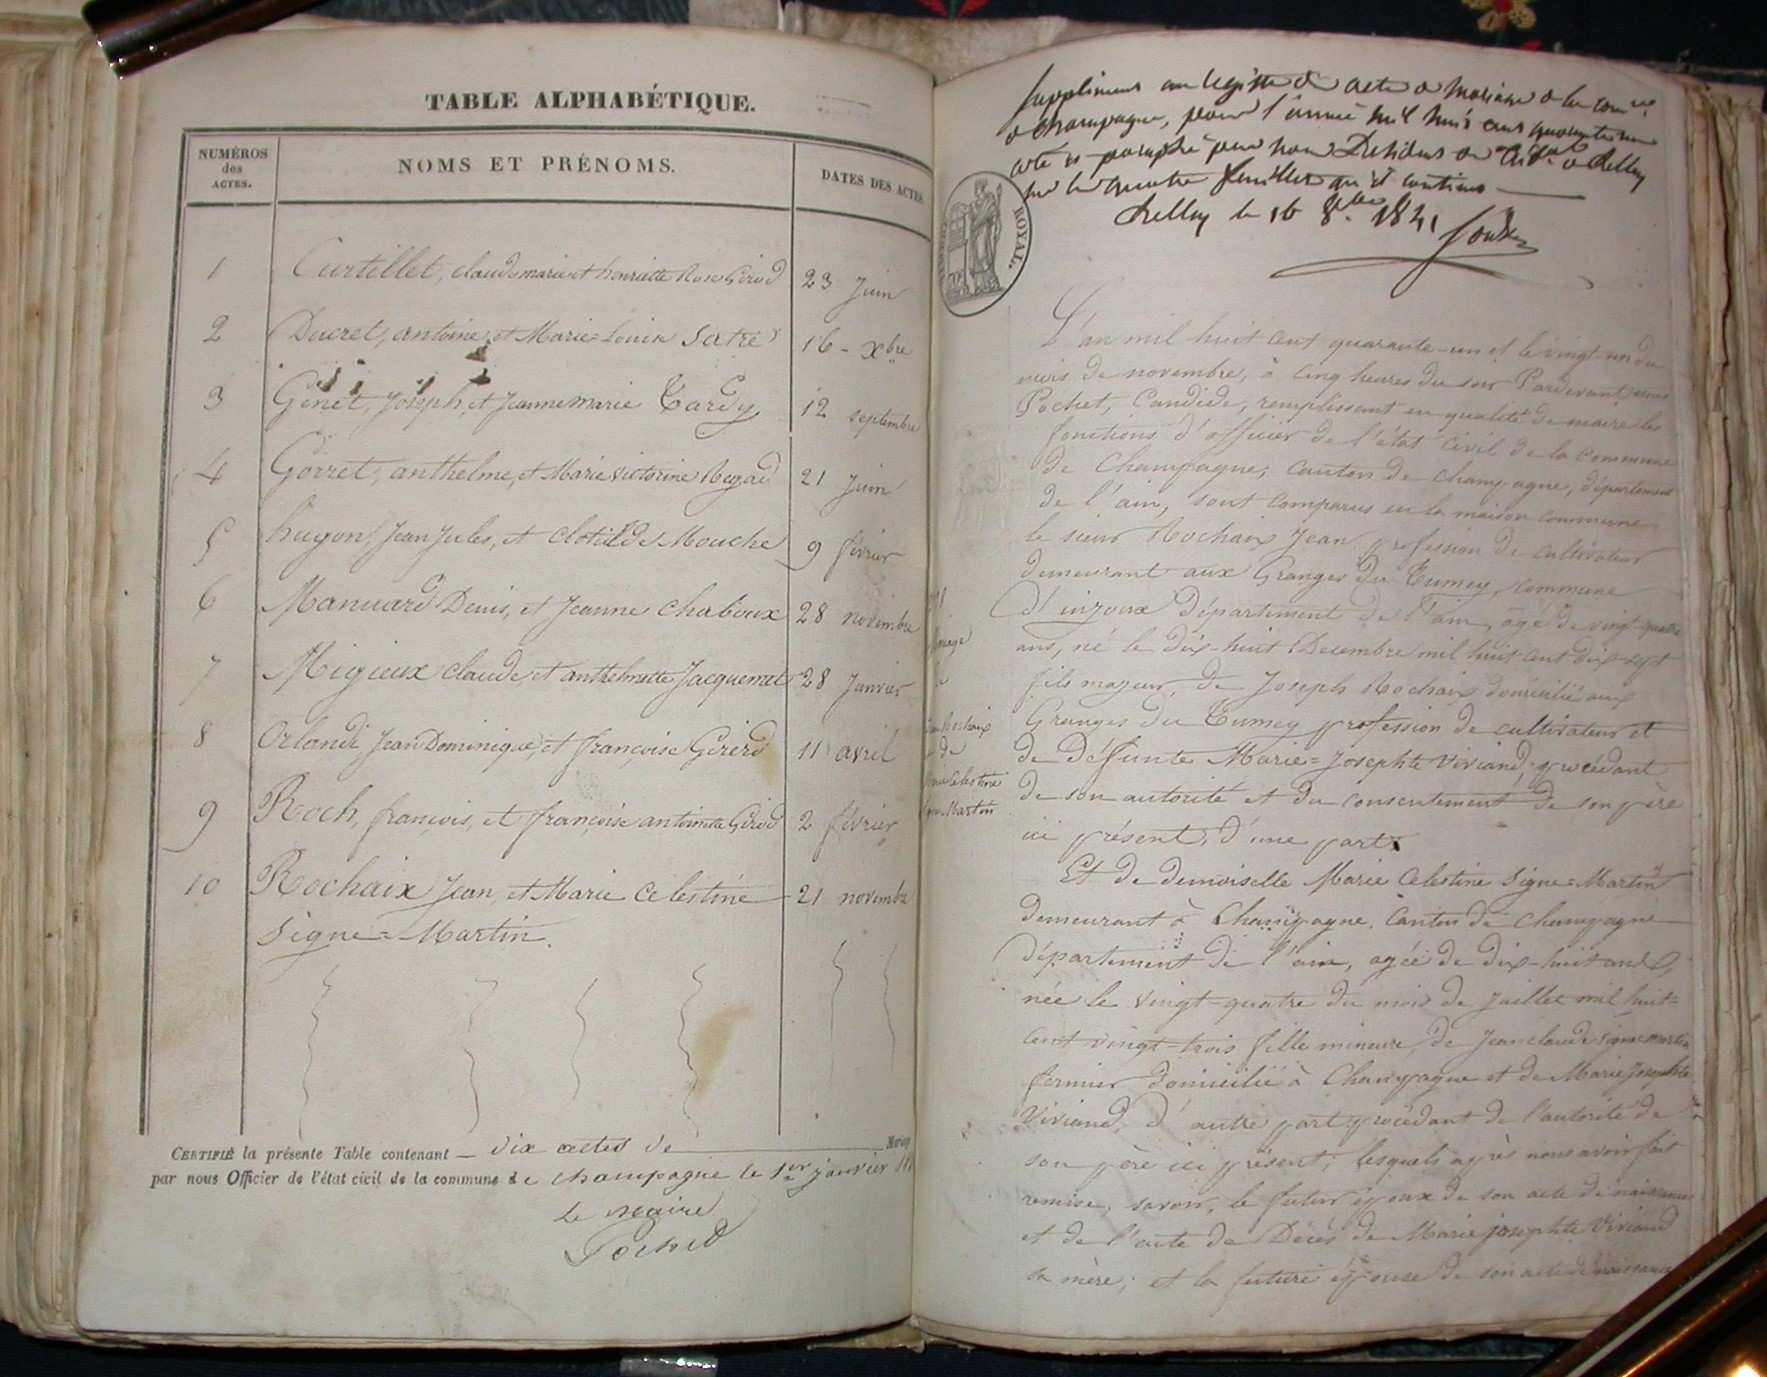 TABLE ALPHABÉTIQUE.
NUMÉROS des ACTES.
NOMS ET PRÉNOMS.
DATES DES ACTES
1 Curtillet, claude marie et henriette Rose Girod 23 Juin
2 Ducret, antoine, et Marie-Louise Satre 16 - Xbre
3 Genet, Joseph, et Jeanne marie Tardy 12 septembre
4 Gorret, anthelme, et Marie victorine Reyad 21 Juin
5 hugon, Jean Jules, et Clotilde Mouche 9 février
6 Manuard Denis, et Jeanne Chaboux 28 novembre
7 Migieux claude, et anthelmette Jacquemet 28 Janvier
8 Orlandi Jean Dominique, et françoise Girerd 11 avril
9 Roch, françois, et françoise antoinette Girod 2 février
10 Rochaix Jean, et Marie Celestine 21 novembre
Signe=Martin.
CERTIFIÉ la présente Table contenant dix actes de
par nous Officier de l'état civil de la commune de champagne le 1er janvier
Le Maire
Pochet
supplément au registre de acte de mariage de la com.ne
de champagne, pour l'année mil huit cent quarante un
coté et paraphé par nous Président du de Belley
sur les quatre feuillets qu'il contient
Belley le 16 8bre 1841
ROYAL.
L'an mil huit cent quarante-un et le vingt-un du
mois de novembre, à cinq heures du soir Pardevant nous
Pochet, Candide, remplissant en qualité de maire les
fonctions d'officier de l'état civil de la commune
de Champagne, canton de champagne, département
de l'ain, sont comparus en la maison commune
le sieur Rochaix Jean profession de cultivateur
demeurant aux Granges du Tumey, commune
d'injoux département de l'ain, agé de vingt-quatre
ans, né le dix-huit Decembre mil huit cent dix-sept
fils majeur, de Joseph Rochaix domicilié aux
Granges du Tumey profession de cultivateur et
de Défunte Marie=Josephte Viviand; procédant
de son autorité et du consentement de son père
ici présent, d'une part
Et de demoiselle Marie Celestine Signe=Martin
demeurant à Champagne, Canton de Champagne
département de l'ain, agée de dix-huit ans,
née le vingt-quatre du mois de Juillet mil huit=
cent vingt-trois fille mineure, de Jean claude Signe martin
fermier domicilié à Champagne et de Marie Josephte
Viviand, d'autre part procédant de l'autorité de
son père ici présent; lesquels après nous avoir fait
remise, savoir, le futur époux de son acte de naissance
et de l'acte de Décès de Marie josephte Viviand
sa mère; et la future épouse de son acte de naissance
Mariage
Rochaix
de
Celestine
Martin